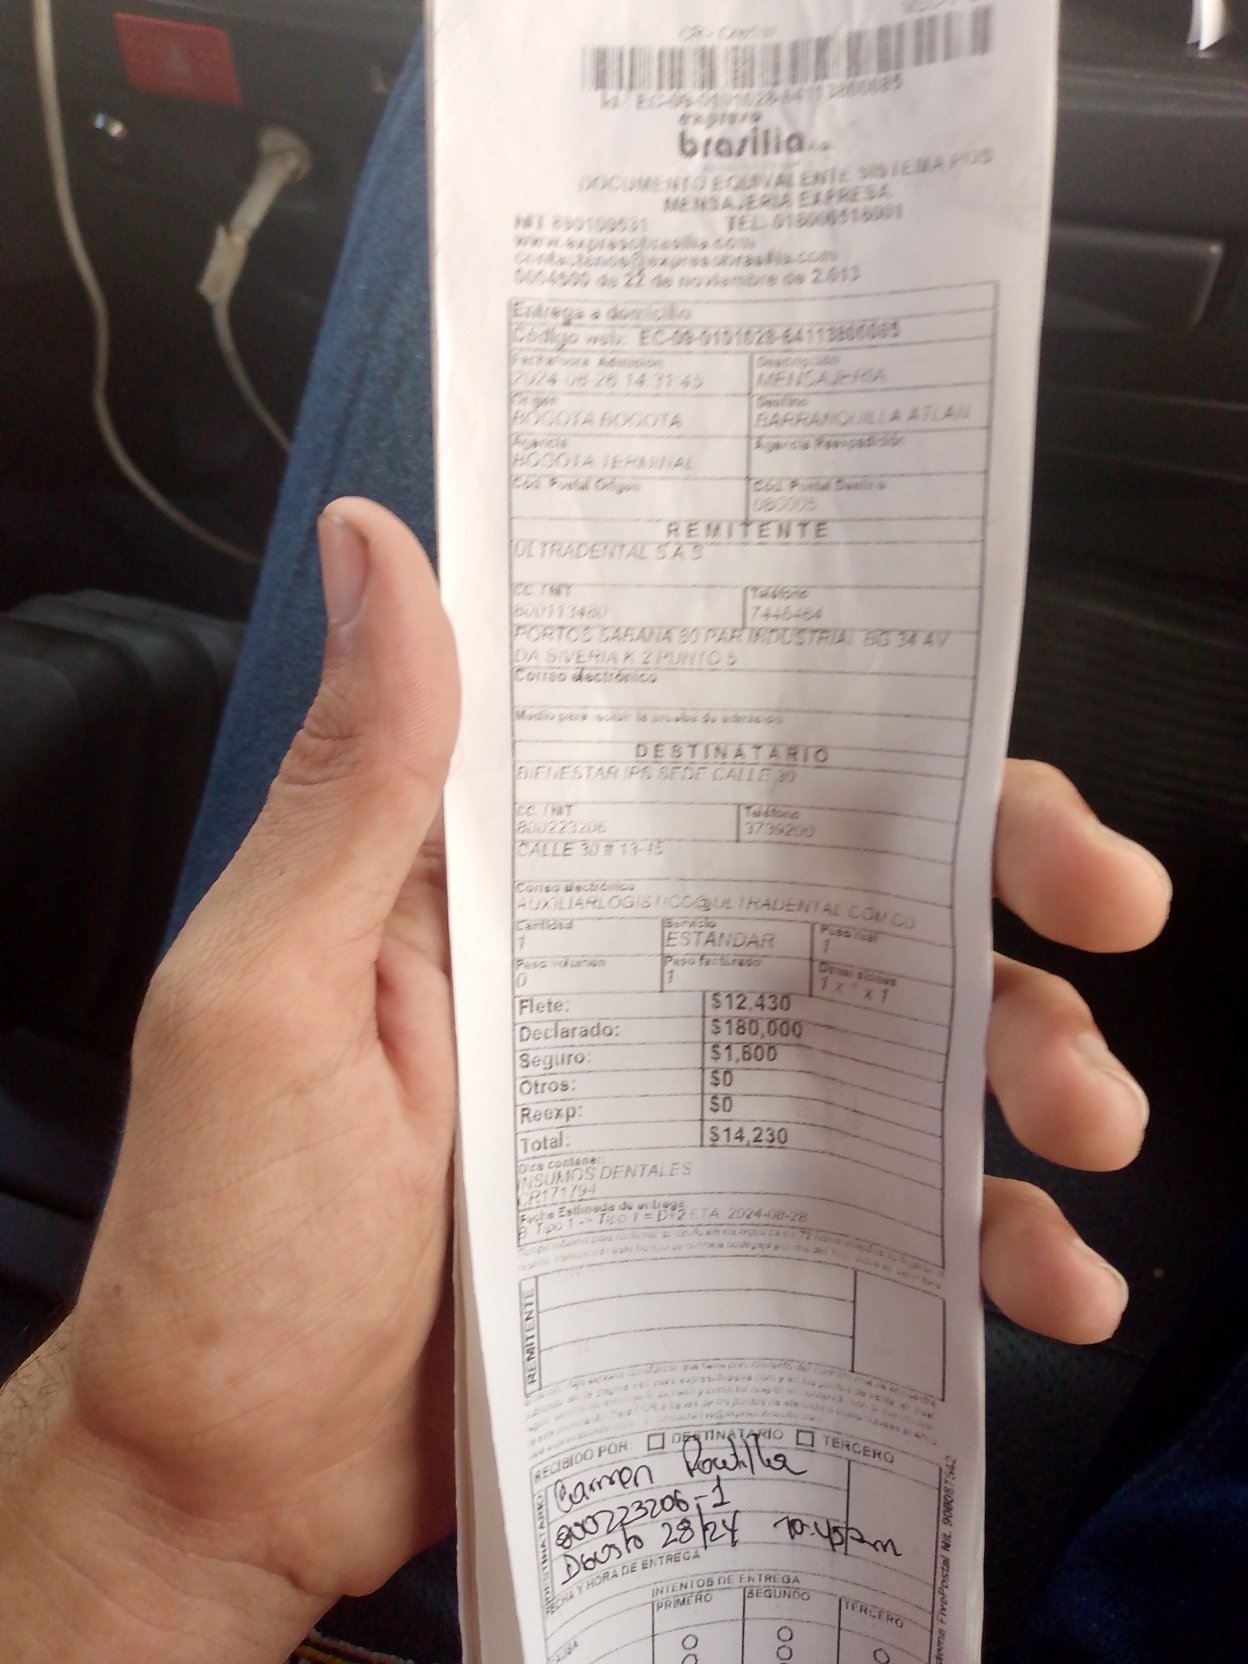 EC-09-0101628-64113800085
expreso
brasilia
DOCUMENTO EQUIVALENTE SISTEMA POS
MENSAJERIA EXPRESA
NIT 890100531 TEL. 018000518001
www.expresobrasilia.com
contactenos@expresobrasilia.com
0004500 de 22 de noviembre de 2.013
Entrega a domicilio
Código web: EC-09-0101628-64113800085
Fecha/Hora Admisión Descripción
2024-08-26 14:31:45 MENSAJERIA
Origen Destino
BOGOTA BOGOTA BARRANQUILLA ATLAN
Agencia Agencia Reexpedición
BOGOTA TERMINAL
Cód. Postal Origen Cód. Postal Destino
080005
REMITENTE
ULTRADENTAL S A S
CC. / NIT Teléfono
800113480 7446464
PORTOS SABANA 80 PAR INDUSTRIAL BG 34 AV
DA SIVERIA K 2 PUNTO 5
Correo electrónico
Medio para recibir la prueba de admisión
DESTINATARIO
BIENESTAR IPS SEDE CALLE 30
CC. / NIT Teléfono
800223206 3739200
CALLE 30 # 13-45
Correo electrónico
AUXILIARLOGISTICO@ULTRADENTAL.COM.CO
Cantidad Servicio Peso real
1 ESTANDAR 1
Peso volumen Peso facturado Dimensiones
0 1 1 x 1 x 1
Flete: $12,430
Declarado: $180,000
Seguro: $1,800
Otros: $0
Reexp: $0
Total: $14,230
Dice contener:
INSUMOS DENTALES
CR171794
Fecha Estimada de entrega
Tipo 1 -> Tipo 1 = D+2 ETA: 2024-08-28
REMITENTE
RECIBIDO POR: DESTINATARIO TERCERO
DESTINATARIO
Carmen Padilla
800223206-1
Agosto 28/24 10:45am
FECHA Y HORA DE ENTREGA
INTENTOS DE ENTREGA
CAUSA PRIMERO SEGUNDO TERCERO
FivePostal Nit. 900087542